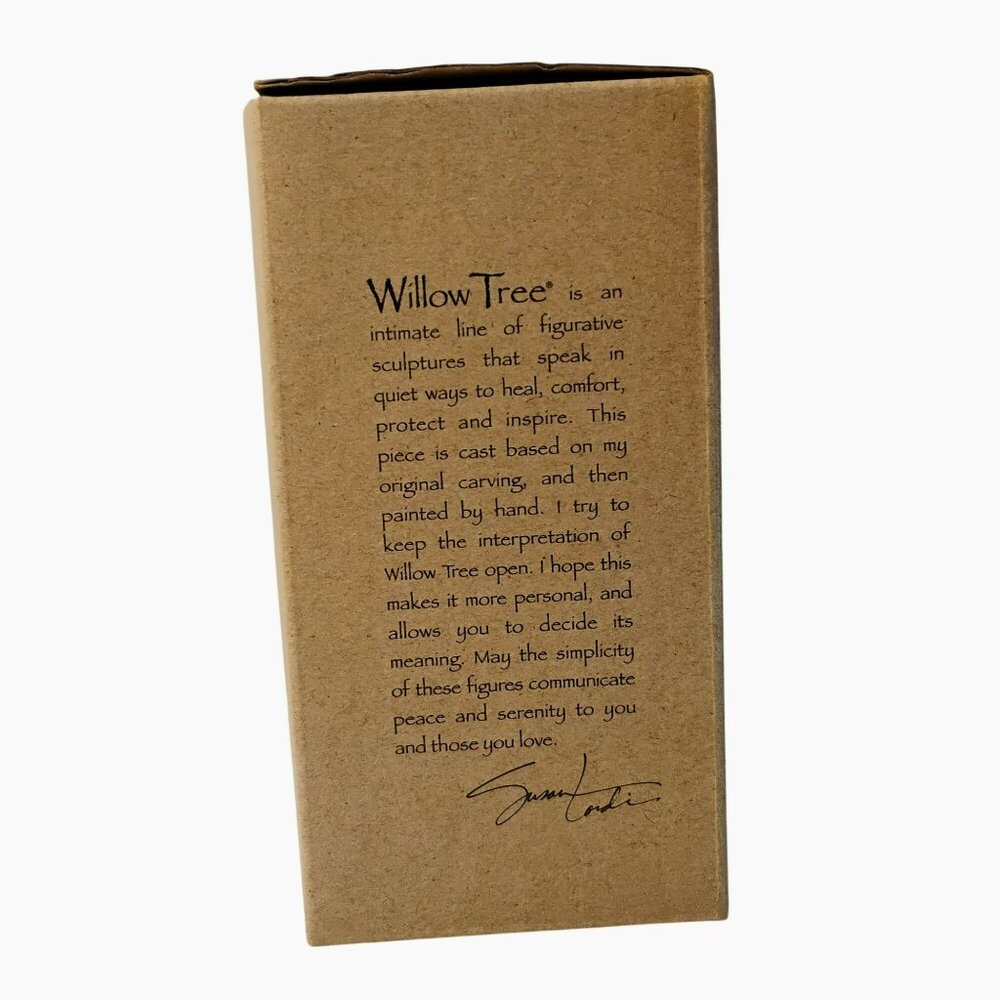 Willow Tree® is an
intimate line of figurative
sculptures that speak in
quiet ways to heal, comfort,
protect and inspire. This
piece is cast based on my
original carving, and then
painted by hand. I try to
keep the interpretation of
Willow Tree open. I hope this
makes it more personal, and
allows you to decide its
meaning. May the simplicity
of these figures communicate
peace and serenity to you
and those you love.
Susan Lordi